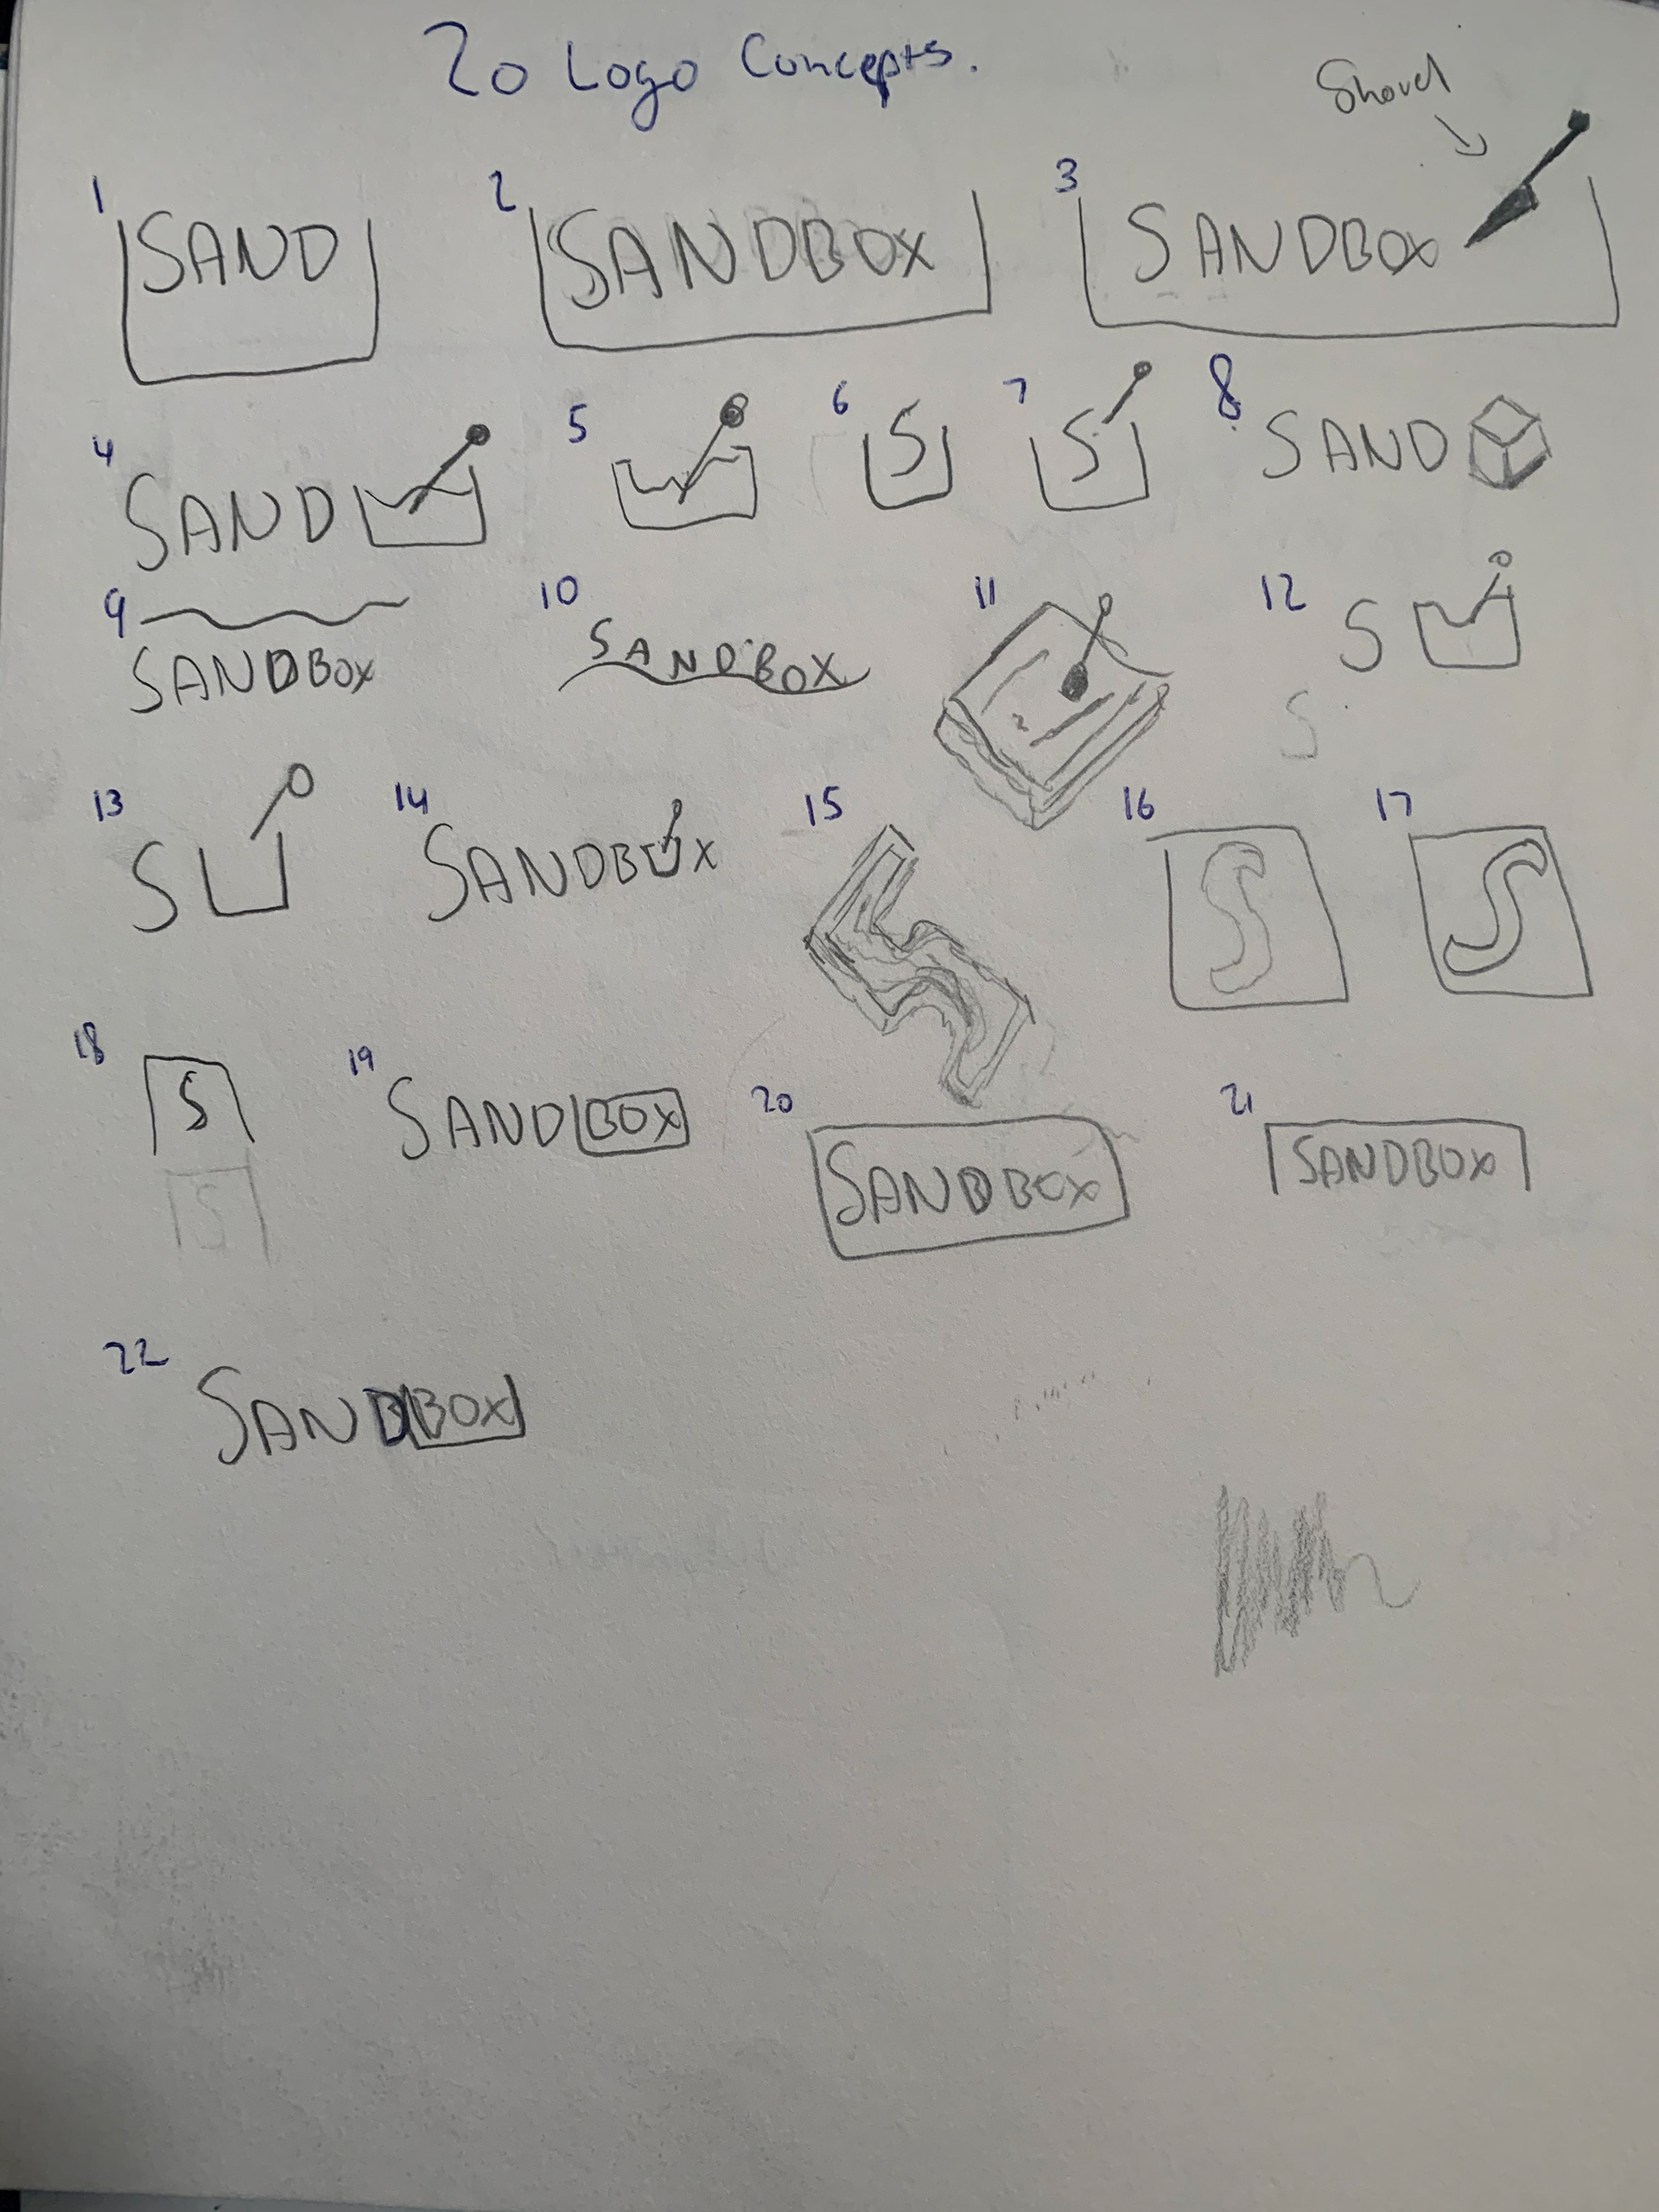 20 Logo Concepts.
Shovel
1 SAND
2 SANDBOX
3 SANDBOX
4 SAND
5
6 S
7 S
8 SAND
9 SANDBOX
10 SANDBOX
11
12 S
S
13 S
14 SANDBOX
15
16 S
17 S
18 S
S
19 SANDBOX
20 SANDBOX
21 SANDBOX
22 SANDBOX